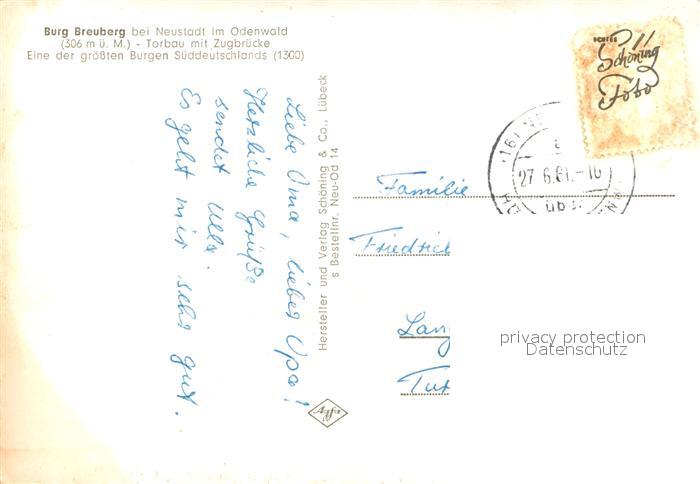 Burg Breuberg bei Neustadt im Odenwald
(306 m ü. M.) - Torbau mit Zugbrücke
Eine der größten Burgen Süddeutschlands (1300)
Liebe Oma, liebes Opa!
Herzliche Grüße
sendet Ulla.
Es geht mir sehr gut.
Hersteller und Verlag Schöning & Co., Lübeck
s Bestellnr. Neu-Od 14
Agfa
Schöning
Foto
(16)
27.6.61.-16
üb
Familie
Friedrich
Lang
Tur
privacy protection
Datenschutz